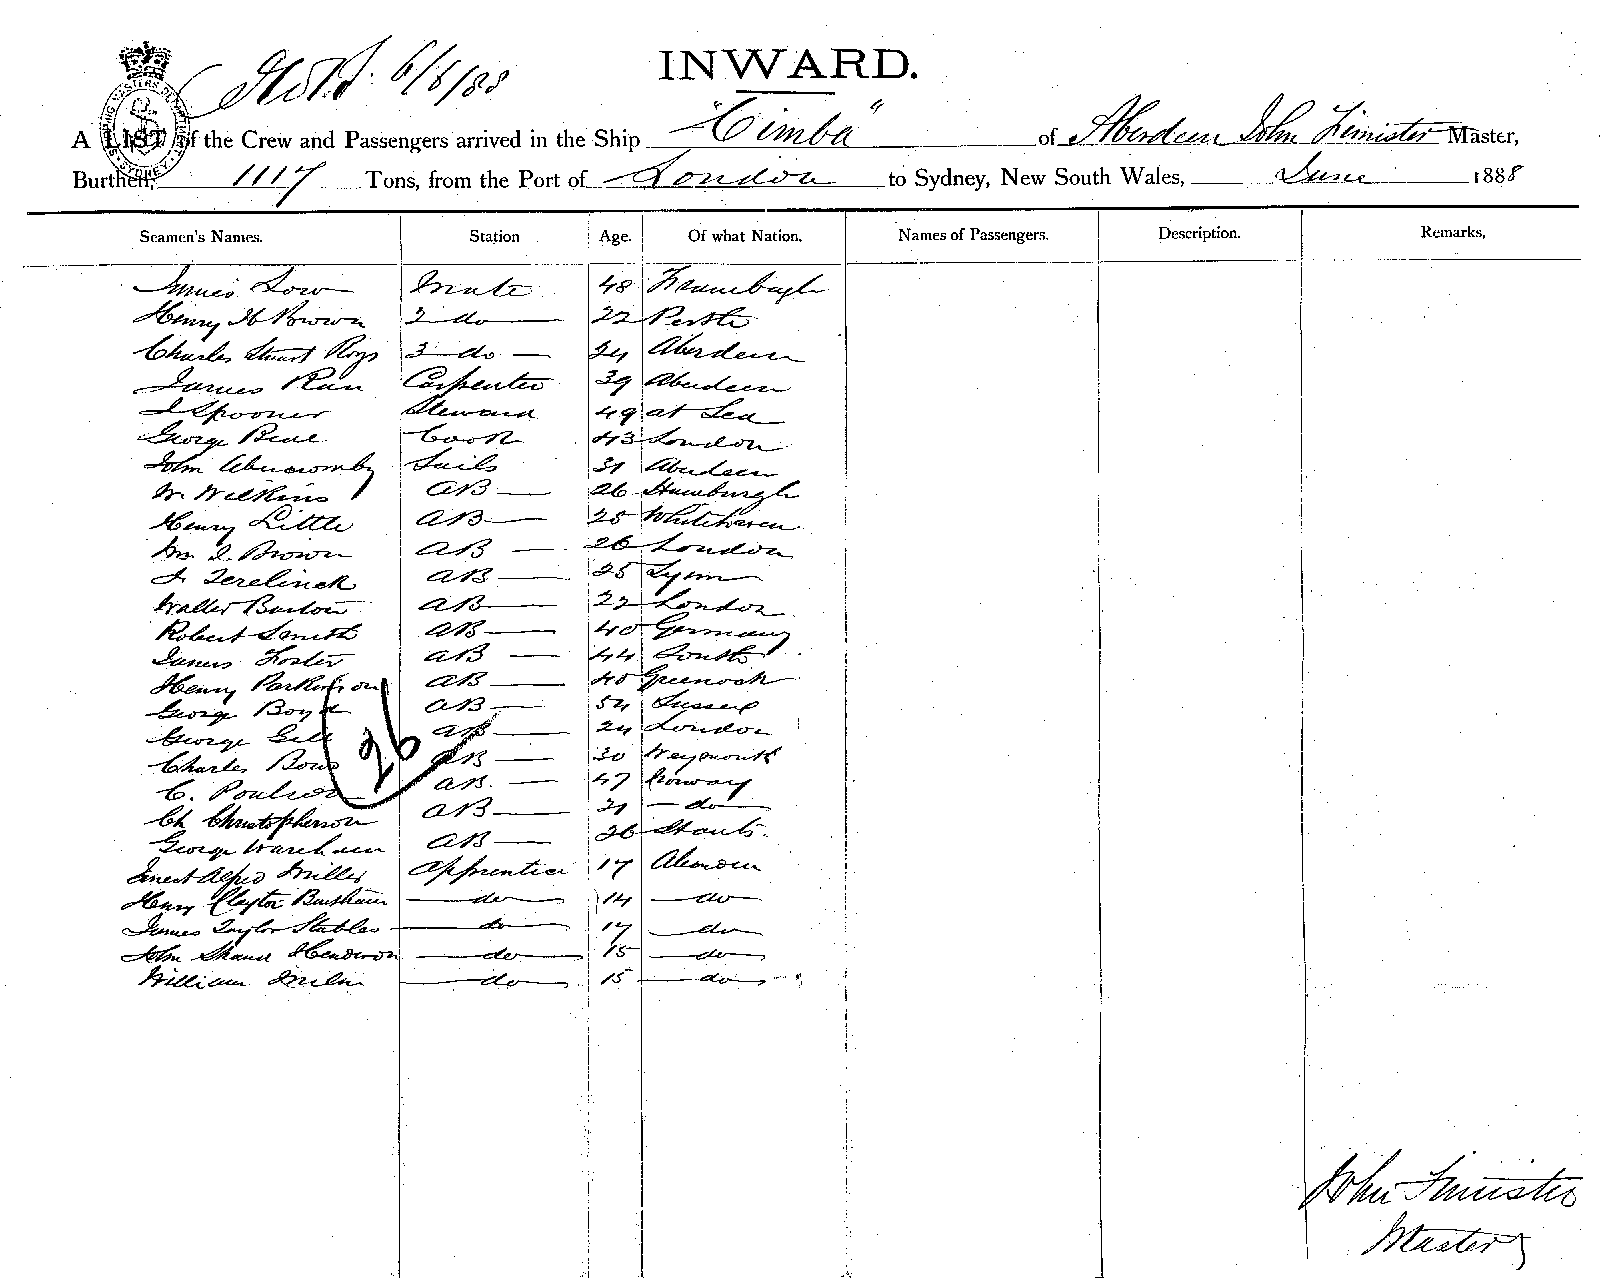 INWARD.
6/6/88
A LIST of the Crew and Passengers arrived in the Ship "Cimba" of Aberdeen John Fimister Master,
Burthen, 1117 Tons, from the Port of London to Sydney, New South Wales, June 1888
Seamen's Names. Station Age. Of what Nation. Names of Passengers. Description. Remarks.
James Low Mate 48
Henry H Brown 2 do 22 Perth
Charles Stuart 3 do 24 Aberdeen
James Carpenter 39 Aberdeen
J Spooner Steward 49 at Sea
George Cook 43 London
John Abercromby Sails 31 Aberdeen
W. Wilkins AB 26 Hamburgh
Henry Little AB 25 Whitehaven
Wm. J. Brown AB 26 London
J. Terelinck AB 25
Walter Barton AB 22 London
Robert Smith AB 40 Germany
James Foster AB 44
Henry Parkinson AB 40 Greenock
George Boyd AB 54 Sussex
George Gill AB 24 London
Charles AB 30 Weymouth
C. Poulson AB. 47 Norway
Ch Christopherson AB 21 do
George Wareham AB 26 Hants.
Ernest Alfred Miller Apprentice 17 Aberdeen
Henry Clayton do 14 do
James Taylor Stables do 17 do
John Shand Henderson do 15 do
William Milne do 15 do
26
John Fimister
Master